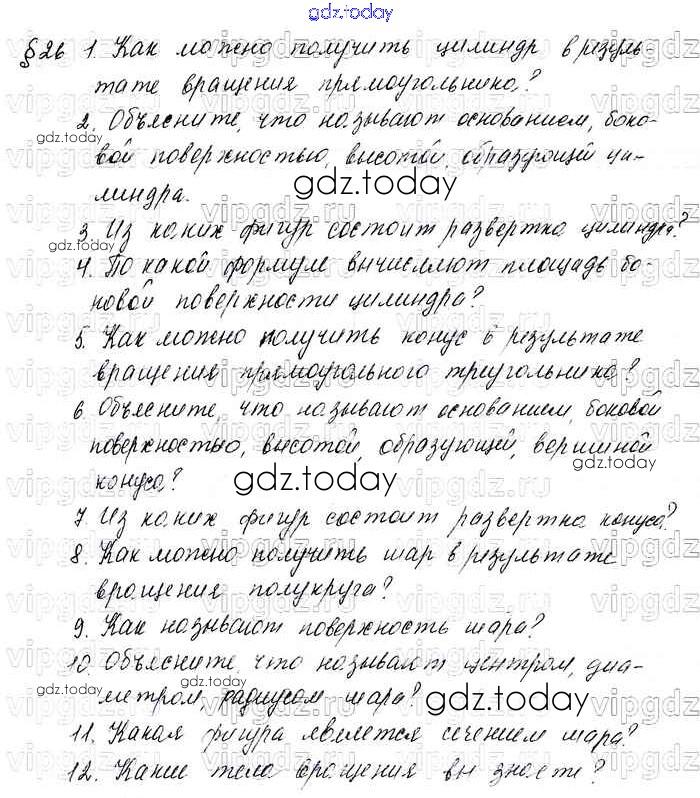 gdz.today
§26 1. Как можно получить цилиндр в резуль-
тате вращения прямоугольника?
2. Объясните, что называют основанием, боко-
вой поверхностью, высотой, образующей ци-
gdz.today
линдра.
gdz.today
3. Из каких фигур состоит развертка цилиндра?
gdz.today
4. По какой формуле вычисляют площадь бо-
ковой поверхности цилиндра?
5. Как можно получить конус в результате
вращения прямоугольного треугольника?
6. Объясните, что называют основанием, боковой
поверхностью, высотой, образующей, вершиной
gdz.today
конуса?
gdz.today
7. Из каких фигур состоит развертка конуса?
8. Как можно получить шар в результате
gdz.today
вращения полукруга?
9. Как называют поверхность шара?
10. Объясните, что называют центром, диа-
gdz.today
метром, радиусом шара?
gdz.today
11. Какая фигура является сечением шара?
12. Какие тела вращения вы знаете?
gdz.today
vipgdz.ru